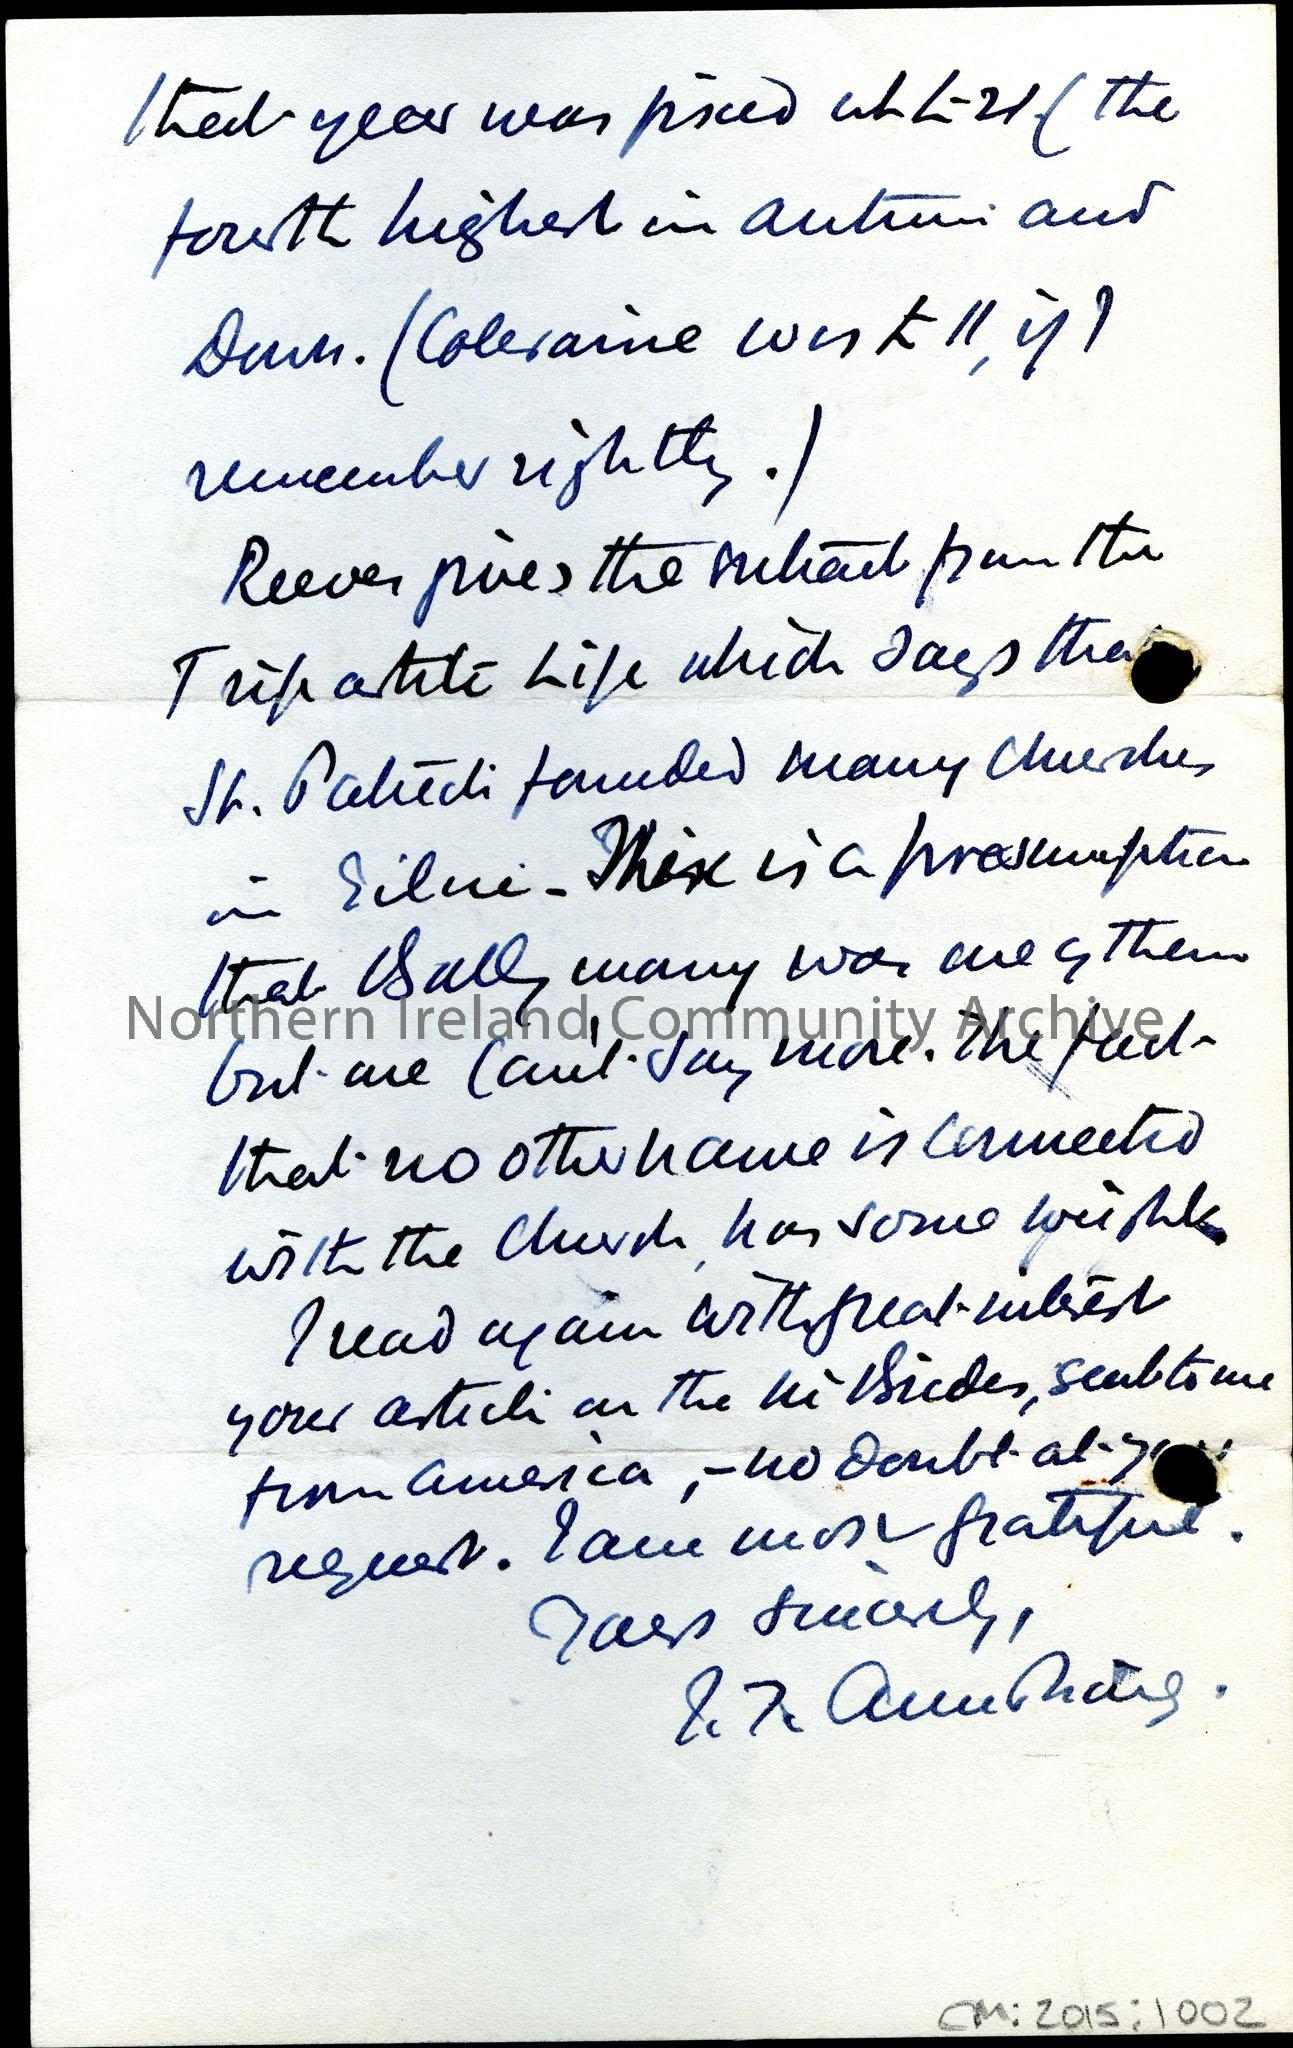 that year was fixed at £21 (the
fourth highest in Antrim and
Down. (Coleraine was £11, if I
remember rightly.)
Reeves gives the extract from the
Tripartite Life which says that
St. Patrick founded many Churches
in Eilne – There is a presumption
that Ballymoney was one of them
but one can't say more. The fact
that no other name is connected
with the Church, has some weight.
I read again with great interest
your article on the McBrides, sent to me
from America, – no doubt at your
request. I am most grateful.
Yours sincerely,
Armstrong.
Northern Ireland Community Archive
CM:2015:1002